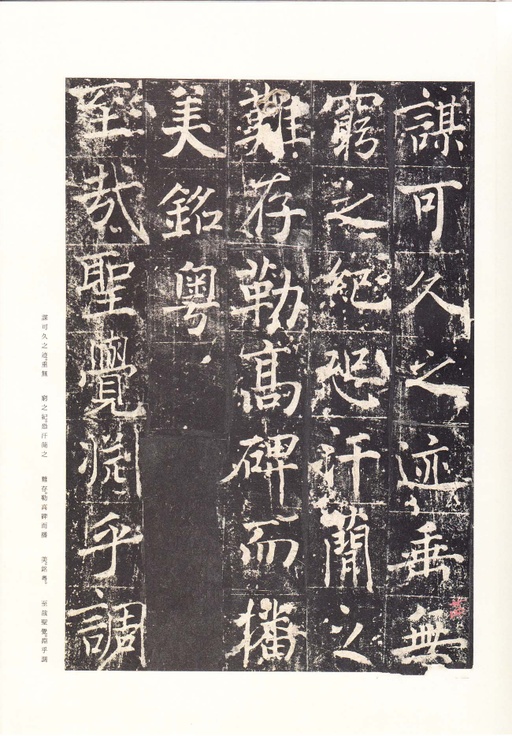 謀可久之迹垂無
窮之紀恐汗簡之
難存勒高碑而播
美銘粤
至哉聖覺淵乎調
謀可久之迹。垂無 窮之紀。恐汗簡之 難存。勒高碑而播 美。銘粤。 至哉聖覺。淵乎調